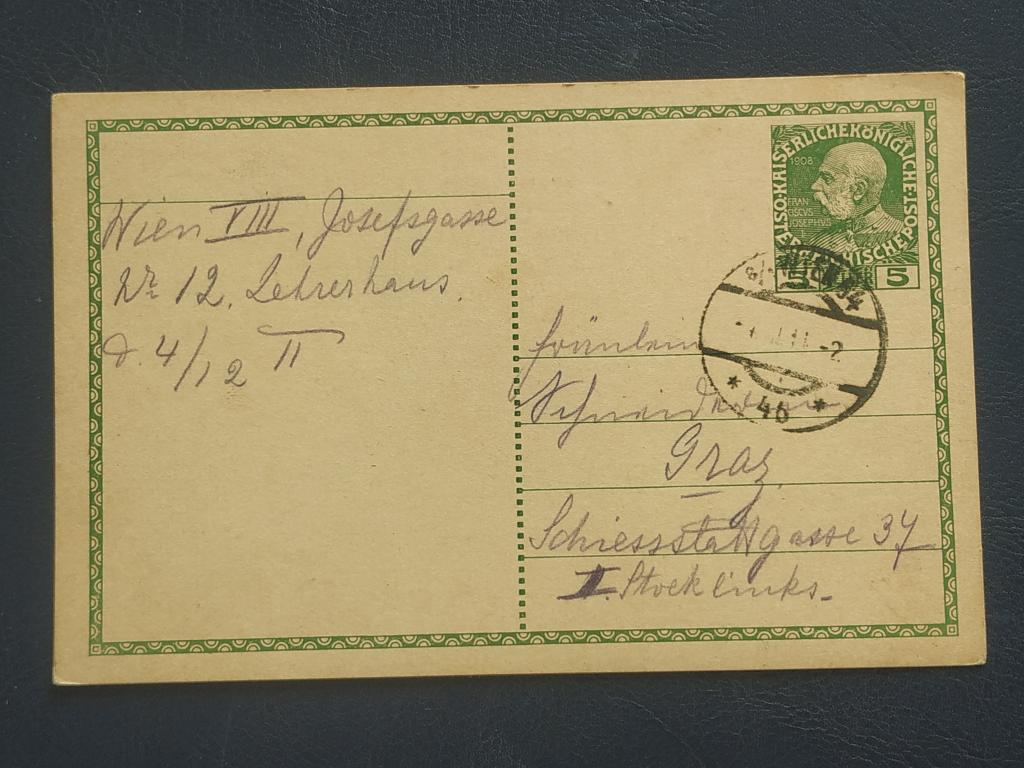 Wien VIII, Josefsgasse
Nr 12. Lehrerhaus.
d. 4/12 II
KAISERLICHEKÖNIGLICHE
ÖSTERREICHISCHEPOST
1908
FRAN
CISCVS
JOSEPHVS
5 5
* 40 *
Fräulein
Graz,
Schiessstattgasse 37
II. Stock links.